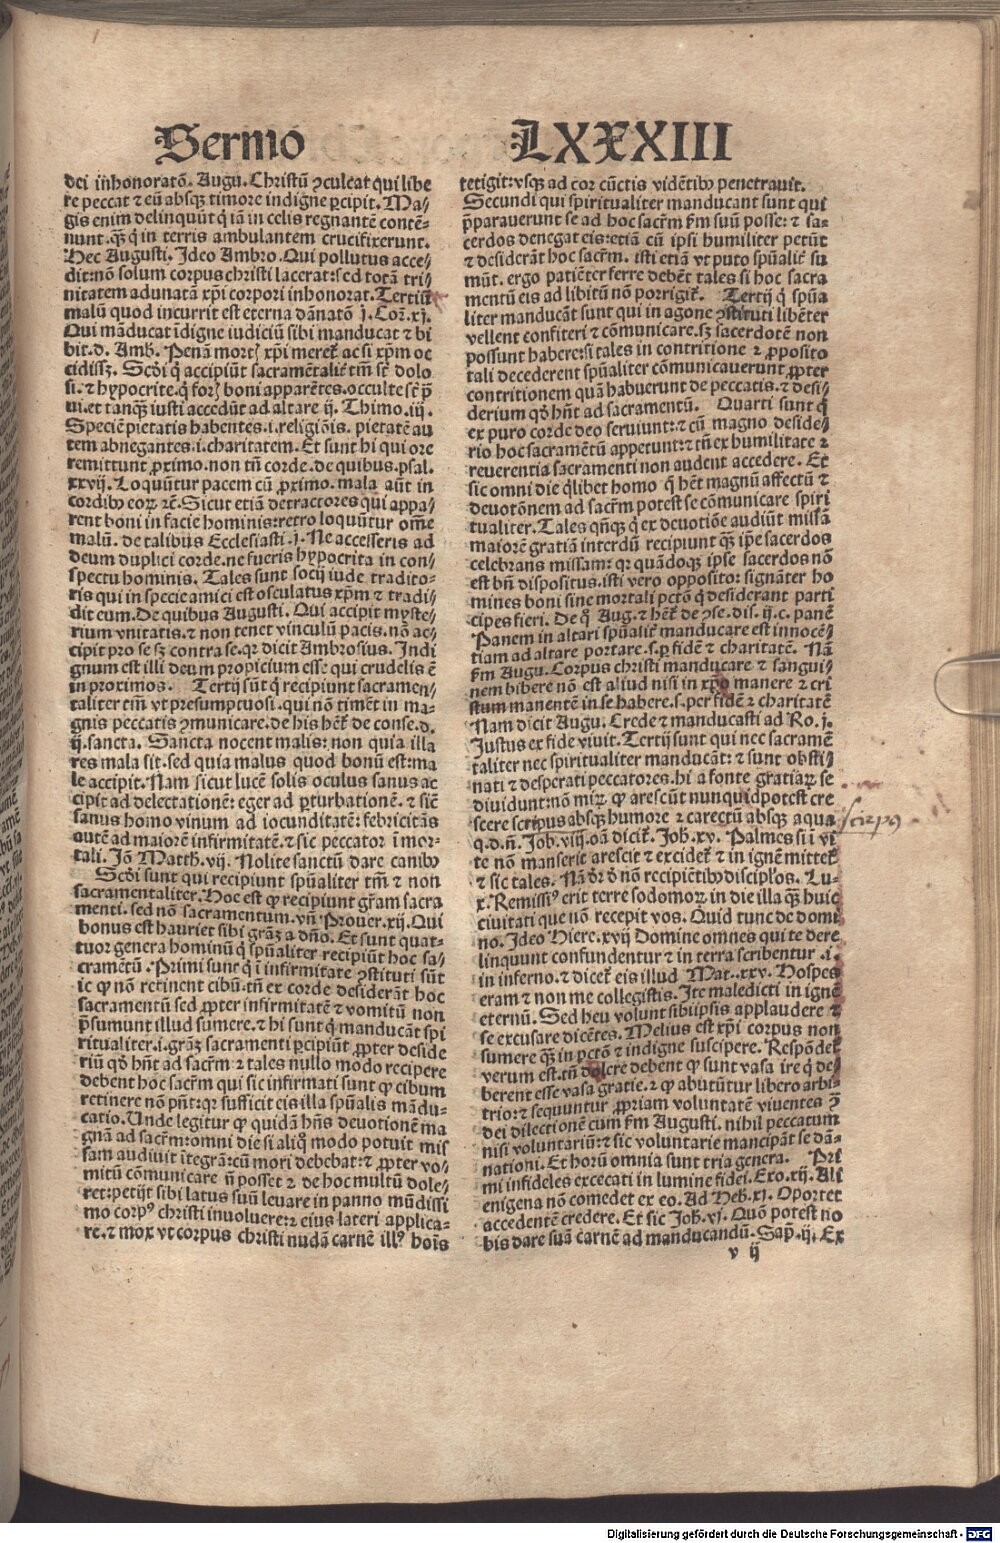 Sermo LXXXIII
dei inhonoratō. Augu. Christū ꝯculcat qui libe
re peccat ⁊ eū absqꝫ timore indigne ꝑcipit. Ma⸗
gis enim delinquūt q̇ iā in celis regnantē contē⸗
nunt. qꝫ̄ q̇ in terris ambulantem crucifixerunt.
Hec Augusti. Ideo Ambro. Qui pollutus acce⸗
dit: nō solum corpus christi lacerat: sed totā tri⸗
nitatem adunatā xp̄i corpori inhonorat. Tertiū
malū quod incurrit est eterna dānatō j. Cor̄. xj.
Qui māducat īdigne iudiciū sibi manducat ⁊ bi
bit. d. Amb. Penā mortꝭ xp̄i meret̄ ac si xp̄m oc
cidissꝫ. Scd̄i q̇ accipiūt sacramētalit̄ tm̄ st̄ dolo
si. ⁊ hypocrite. q̇ forꝭ boni apparētes. occulte st̄ p̄
ui. et tanqꝫ̄ iusti accedūt ad altare ij. Thimo. iij.
Speciē pietatis habentes .i. religiōis. pietatē au
tem abnegantes .i. charitatem. Et sunt hi qui ore
remittunt ꝓximo. non tn̄ corde. de quibus. psal.
xxvij. Loquūtur pacem cū ꝓximo. mala aūt in
cordibꝰ eoꝝ ⁊c̄. Sicut etiā detractores qui appa⸗
rent boni in facie hominis: retro loquūtur om̄e
malū. de talibus Ecclesiasti. j. Ne accesseris ad
deum duplici corde. ne fueris hypocrita in con⸗
spectu hominis. Tales sunt socij iude tradito⸗
ris qui in specie amici est osculatus xp̄m ⁊ tradi⸗
dit eum. De quibus Augusti. Qui accipit myste⸗
rium vnitatis. ⁊ non tenet vinculū pacis. nō ac⸗
cipit pro se sꝫ contra se. qr dicit Ambrosius. Indi
gnum est illi deum propicium esse qui crudelis ē
in proximos. Tertij sūt q̇ recipiunt sacramen⸗
taliter tm̄ vt presumptuosi. qui nō timēt in ma⸗
gnis peccatis ꝯmunicare. de his het̄ de conse. d.
ij. sancta. Sancta nocent malis: non quia illa
res mala sit. sed quia malus quod bonū est: ma⸗
le accipit. Nam sicut lucē solis oculus sanus ac⸗
cipit ad delectationē: eger ad ꝑturbationē. ⁊ sic̄
sanus homo vinum ad iocunditatē: febricitās
autē ad maiorē infirmitatē. ⁊ sic peccator ī mor⸗
tali. Iō Matth. vij. Nolite sanctū dare canibꝰ
Scd̄i sunt qui recipiunt spūaliter tm̄ ⁊ non
sacramentaliter. Hoc est ꝙ recipiunt gr̄am sacra
menti. sed nō sacramentum. vn̄ Prouer. xij. Qui
bonus est hauriet sibi grāꝫ a dn̄o. Et sunt quat⸗
tuor genera hominū q̇ spūaliter recipiūt hoc sa⸗
cramētū. Primi sunt q̇ ī infirmitate ꝯstituti sūt
ic ꝙ nō retinent cibū. tn̄ ex corde desiderāt hoc
sacramentū sed ꝓpter infirmitatē ⁊ vomitū non
p̄sumunt illud sumere. ⁊ hi sunt q̇ manducāt spi
ritualiter. i. grāꝫ sacramenti ꝑcipiūt ꝓpter deside
riū qd̄ hn̄t ad sacr̄m ⁊ tales nullo modo recipere
debent hoc sacr̄m qui sic infirmati sunt ꝙ cibum
retinere nō pn̄t: qr sufficit eis illa spūalis mādu⸗
catio. Unde legitur ꝙ quidā hn̄s deuotionē ma
gnā ad sacr̄m: omni die si aliq̊ modo potuit mis
sam audiuit ītegrā: cū mori debebat: ⁊ ꝓpter vo⸗
mitū cōmunicare n̄ posset ⁊ de hoc multū dole⸗
ret: petijt sibi latus suū leuare in panno mūdissi
mo corpꝰ christi inuoluere: ⁊ eius lateri applica⸗
re. ⁊ mox vt corpus christi nudā carnē illꝰ hoīs
tetigit: vsqꝫ ad cor cūctis vidētibꝰ penetrauit.
Secundi qui spiritualiter manducant sunt qui
p̄parauerunt se ad hoc sacr̄m fm̄ suū posse: ⁊ sa⸗
cerdos denegat eis: etiā cū ipsi humiliter petūt
⁊ desiderāt hoc sacr̄m. isti etiā vt puto spūalit̄ su
mūt. ergo patiēter ferre debēt tales si hoc sacra
mentū eis ad libitū nō porrigit̄. Tertij q̇ spūa
liter manducāt sunt qui in agone ꝯstituti libēter
vellent confiteri ⁊ cōmunicare. sꝫ sacerdotē non
possunt habere: si tales in contritione ⁊ ꝓposito
tali decederent spūaliter cōmunicauerunt ꝓpter
contritionem quā habuerunt de peccatis. ⁊ desi⸗
derium qd̄ hn̄t ad sacramentū. Quarti sunt q̇
ex puro corde deo seruiunt: ⁊ cū magno deside⸗
rio hoc sacramētū appetunt: ⁊ tn̄ ex humilitate ⁊
reuerentia sacramenti non audent accedere. Et
sic omni die q̇libet homo q̇ het̄ magnū affectū ⁊
deuotōnem ad sacr̄m potest se cōmunicare spiri
tualiter. Tales qn̄qꝫ q̇ ex deuotiōe audiūt missā
maiorē gratiā interdū recipiunt qꝫ̄ ip̄e sacerdos
celebrans missam: qr quādoqꝫ ipse sacerdos nō
est bn̄ dispositus. isti vero opposito: signāter ho
mines boni sine mortali pctō q̇ desiderant parti
cipes fieri. De q̊ Aug. ⁊ het̄ de ꝯse. dis. ij. c. panē
Panem in altari spūalit̄ manducare est innocē⸗
tiam ad altare portare. s. ꝑ fidē ⁊ charitatē. Nā
fm̄ Augu. Corpus christi manducare ⁊ sangui⸗
nem bibere nō est aliud nisi in xp̄o manere ⁊ cri
stum manentē in se habere. s. per fidē ⁊ charitatē
Nam dicit Augu. Crede ⁊ manducasti ad Ro. j.
Iustus ex fide viuit. Tertij sunt qui nec sacramē
taliter nec spiritualiter manducāt: ⁊ sunt obsti⸗
nati ⁊ desperati peccatores. hi a fonte gratiaꝝ se
diuidunt: nō miꝝ ꝙ arescūt nunquid potest cre
scere scripus absqꝫ humore ⁊ carectū absqꝫ aqua
q. d. n̄. Job. viij. oā dicit̄. Joh. xv. Palmes si ī vi
te nō manserit arescit ⁊ excidet̄ ⁊ in ignē mittet̄
⁊ sic tales. Nā dr̄ d̄ nō recipiētibꝰ discipl̄os. Lu⸗
x. Remissiꝰ erit terre sodomoꝝ in die illa qꝫ̄ huic
ciuitati que nō recepit vos. Quid tunc de domi
no. Ideo Hiere. xvij Domine omnes qui te dere
linquunt confundentur ⁊ in terra scribentur .i.
in inferno. ⁊ dicet̄ eis illud Mat. xxv. Hospes
eram ⁊ non me collegistis. Ite maledicti in ignē
eternū. Sed heu volunt sibiipsis applaudere ⁊
se excusare dicētes. Melius est xp̄i corpus non
sumere qꝫ̄ in pctō ⁊ indigne suscipere. Respōdet̄
verum est. tn̄ dolere debent ꝙ sunt vasa ire q̇ de⸗
berent esse vasa gratie. ⁊ ꝙ abutūtur libero arbi⸗
trio: ⁊ sequuntur ꝓpriam voluntatē viuentes ꝯ̄
dei dilectionē cum fm̄ Augusti. nihil peccatum
nisi voluntariū: ⁊ sic voluntarie mancipāt se dā⸗
nationi. Et horū omnia sunt tria genera. Pri
mi infideles excecati in lumine fidei. Exo. xij. Ali
enigena nō comedet ex eo. Ad Heb. xj. Oportet
accedentē credere. Et sic Joh. vj. Quō potest no
bis dare suā carnē ad manducandū. Sap̄. ij. Ex
v ij
scirpus
Digitalisierung gefördert durch die Deutsche Forschungsgemeinschaft - DFG